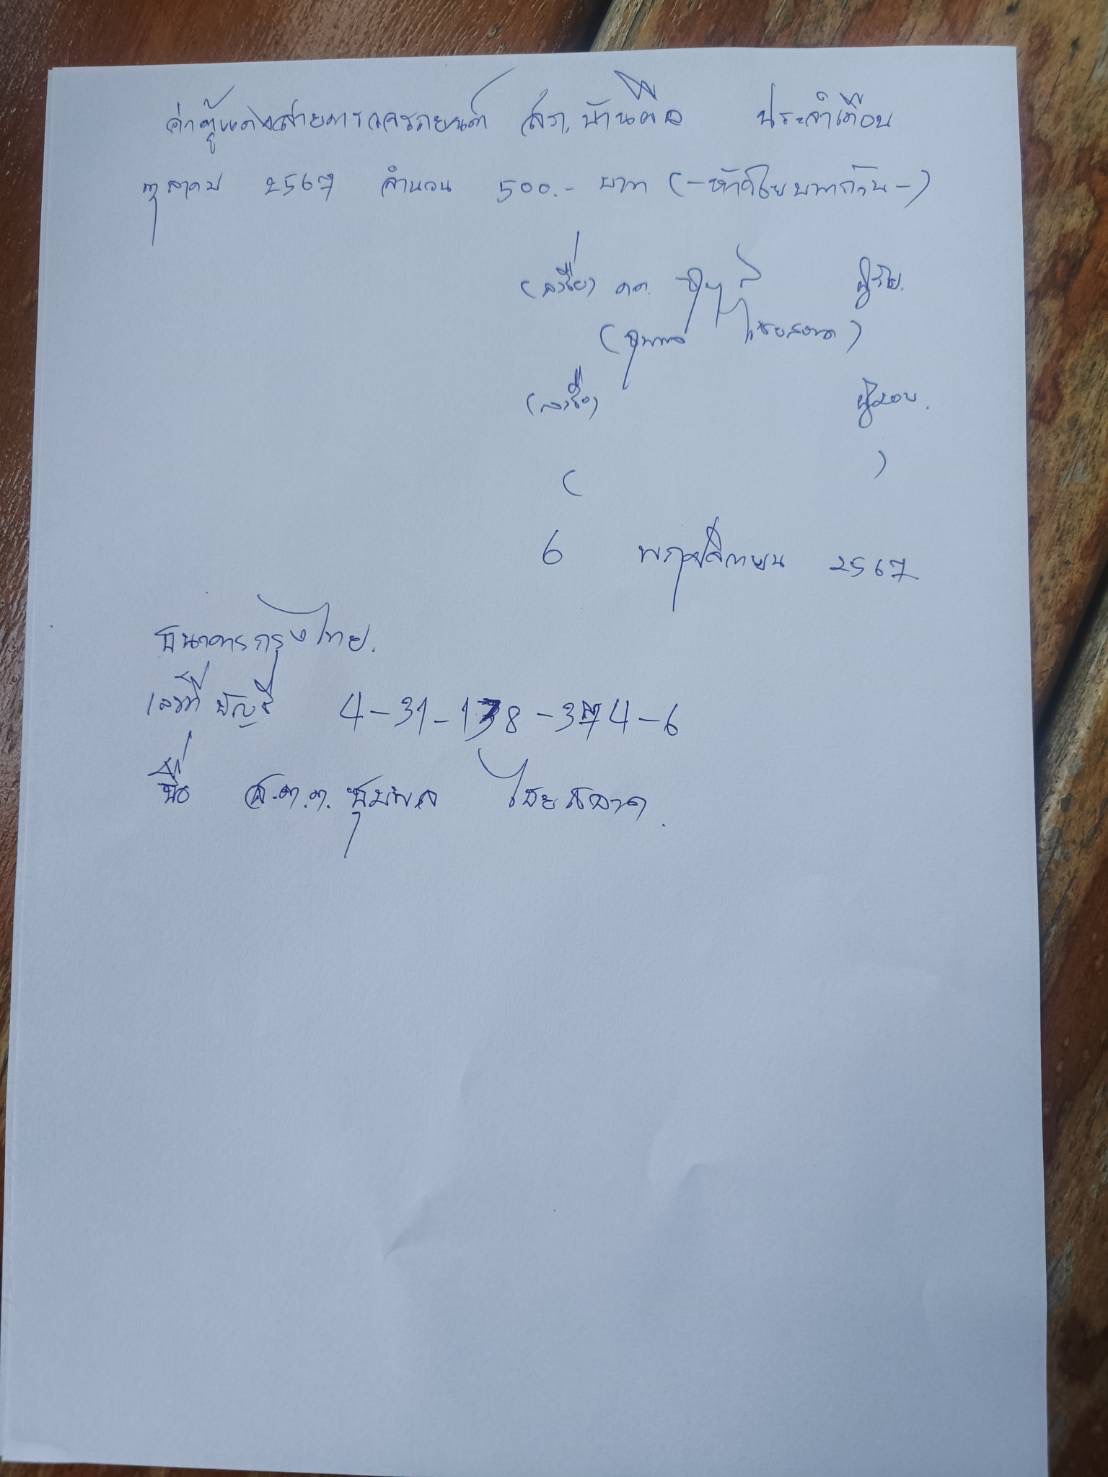 ค่าตู้แดงสายตรวจรถยนต์ สภ.บ้านผือ ประจำเดือน
ตุลาคม 2567 จำนวน 500.- บาท (-ห้าร้อยบาทถ้วน-)
(ลงชื่อ) ด.ต. ผู้รับ.
(ชุมพล ไชยสลาด)
(ลงชื่อ) ผู้มอบ.
( )
6 พฤศจิกายน 2567
ธนาคารกรุงไทย.
เลขที่บัญชี 4-31-138-374-6
ชื่อ ส.ต.ต. ชุมพล ไชยสลาด.